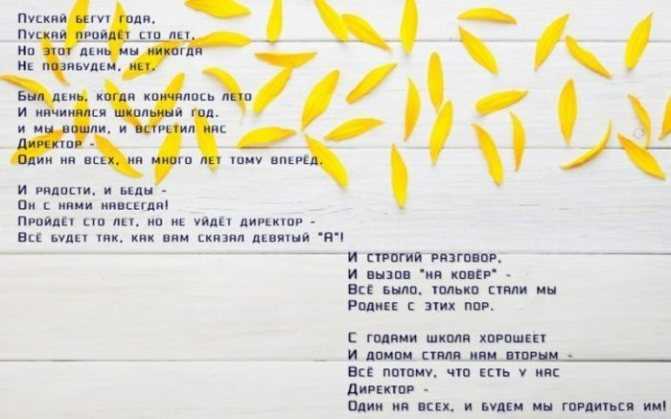 Пускай бегут года,
Пускай пройдёт сто лет,
Но этот день мы никогда
Не позабудем, нет.
Был день, когда кончалось лето
И начинался школьный год.
и мы вошли, и встретил нас
Директор -
Один на всех, на много лет тому вперёд.
И радости, и беды -
Он с нами навсегда!
Пройдёт сто лет, но не уйдёт директор -
Всё будет так, как вам сказал девятый "А"!
И строгий разговор,
И вызов "на ковёр" -
Всё было, только стали мы
Роднее с этих пор.
С годами школа хорошеет
И домом стала нам вторым -
Всё потому, что есть у нас
Директор -
Один на всех, и будем мы гордиться им!